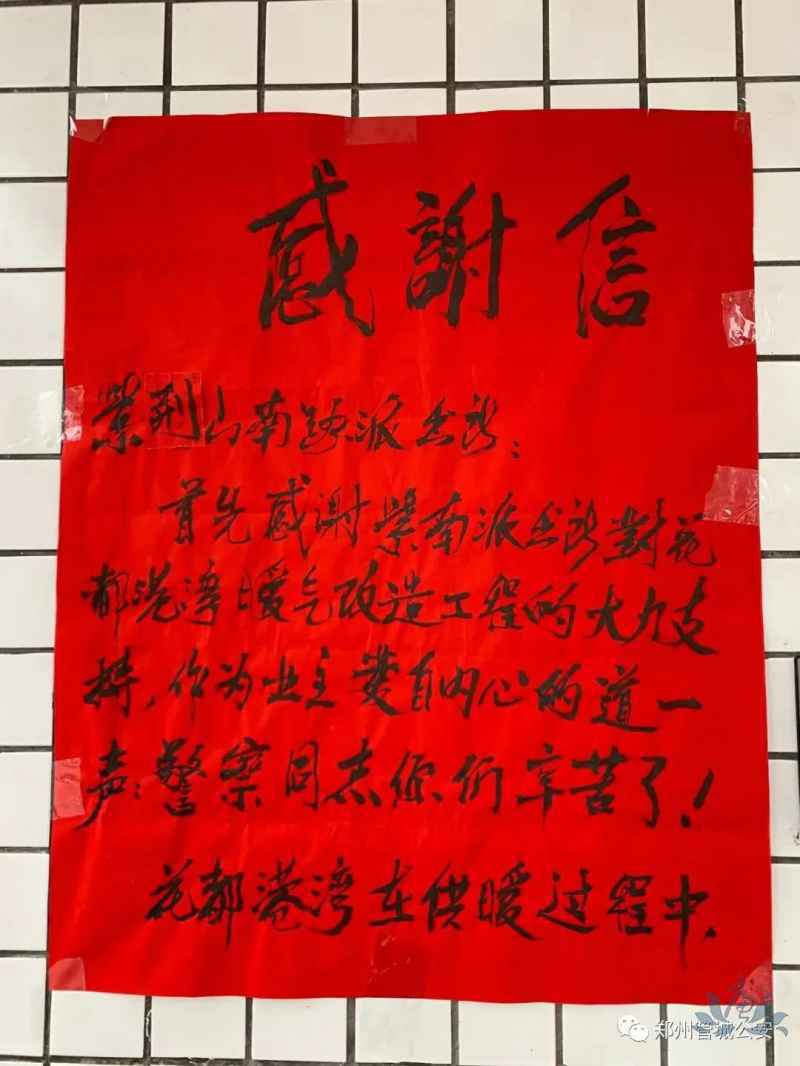 感謝信
紫荆山南路派出所：
首先感谢紫南派出所對花
都港湾暖气改造工程的大力支
持，作为业主发自内心的道一
声：警察同志你们辛苦了！
花都港湾在供暖过程中，
郑州管城公安